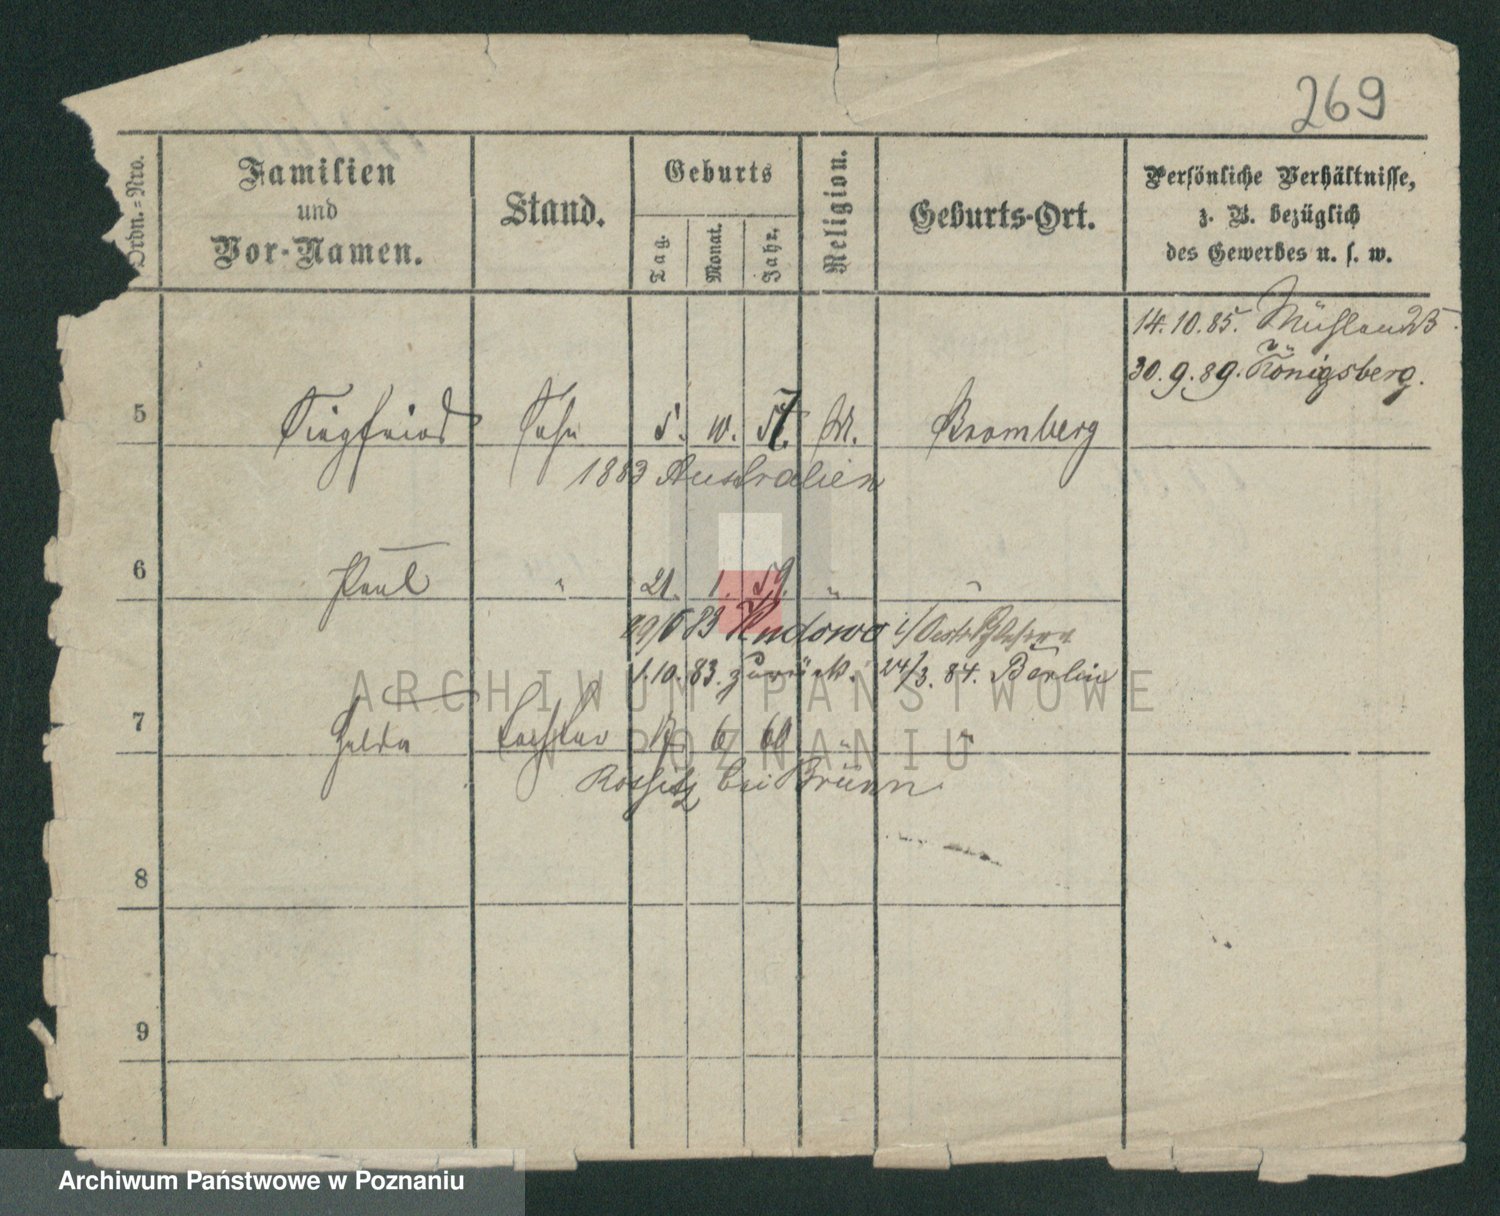 269
Ordn.=Nro.
Familien
und
Vor-Namen.
Stand.
Geburts
Tag.
Monat.
Jahr.
Religion.
Geburts-Ort.
Persönliche Verhältnisse,
z. B. bezüglich
des Gewerbes u. s. w.
14.10.85.
30.9.89. Königsberg.
5 Siegfried Sohn 5. 57. Bromberg
1883 Australien
6 Paul " 21. 1. 59. " "
83 Kudowa
1.10.83. zurück. 24/3. 84. Berlin
ARCHIWUM PAŃSTWOWE
7 Tochter 6 " "
W POZNANIU
bei Brünn
8
9
Archiwum Państwowe w Poznaniu